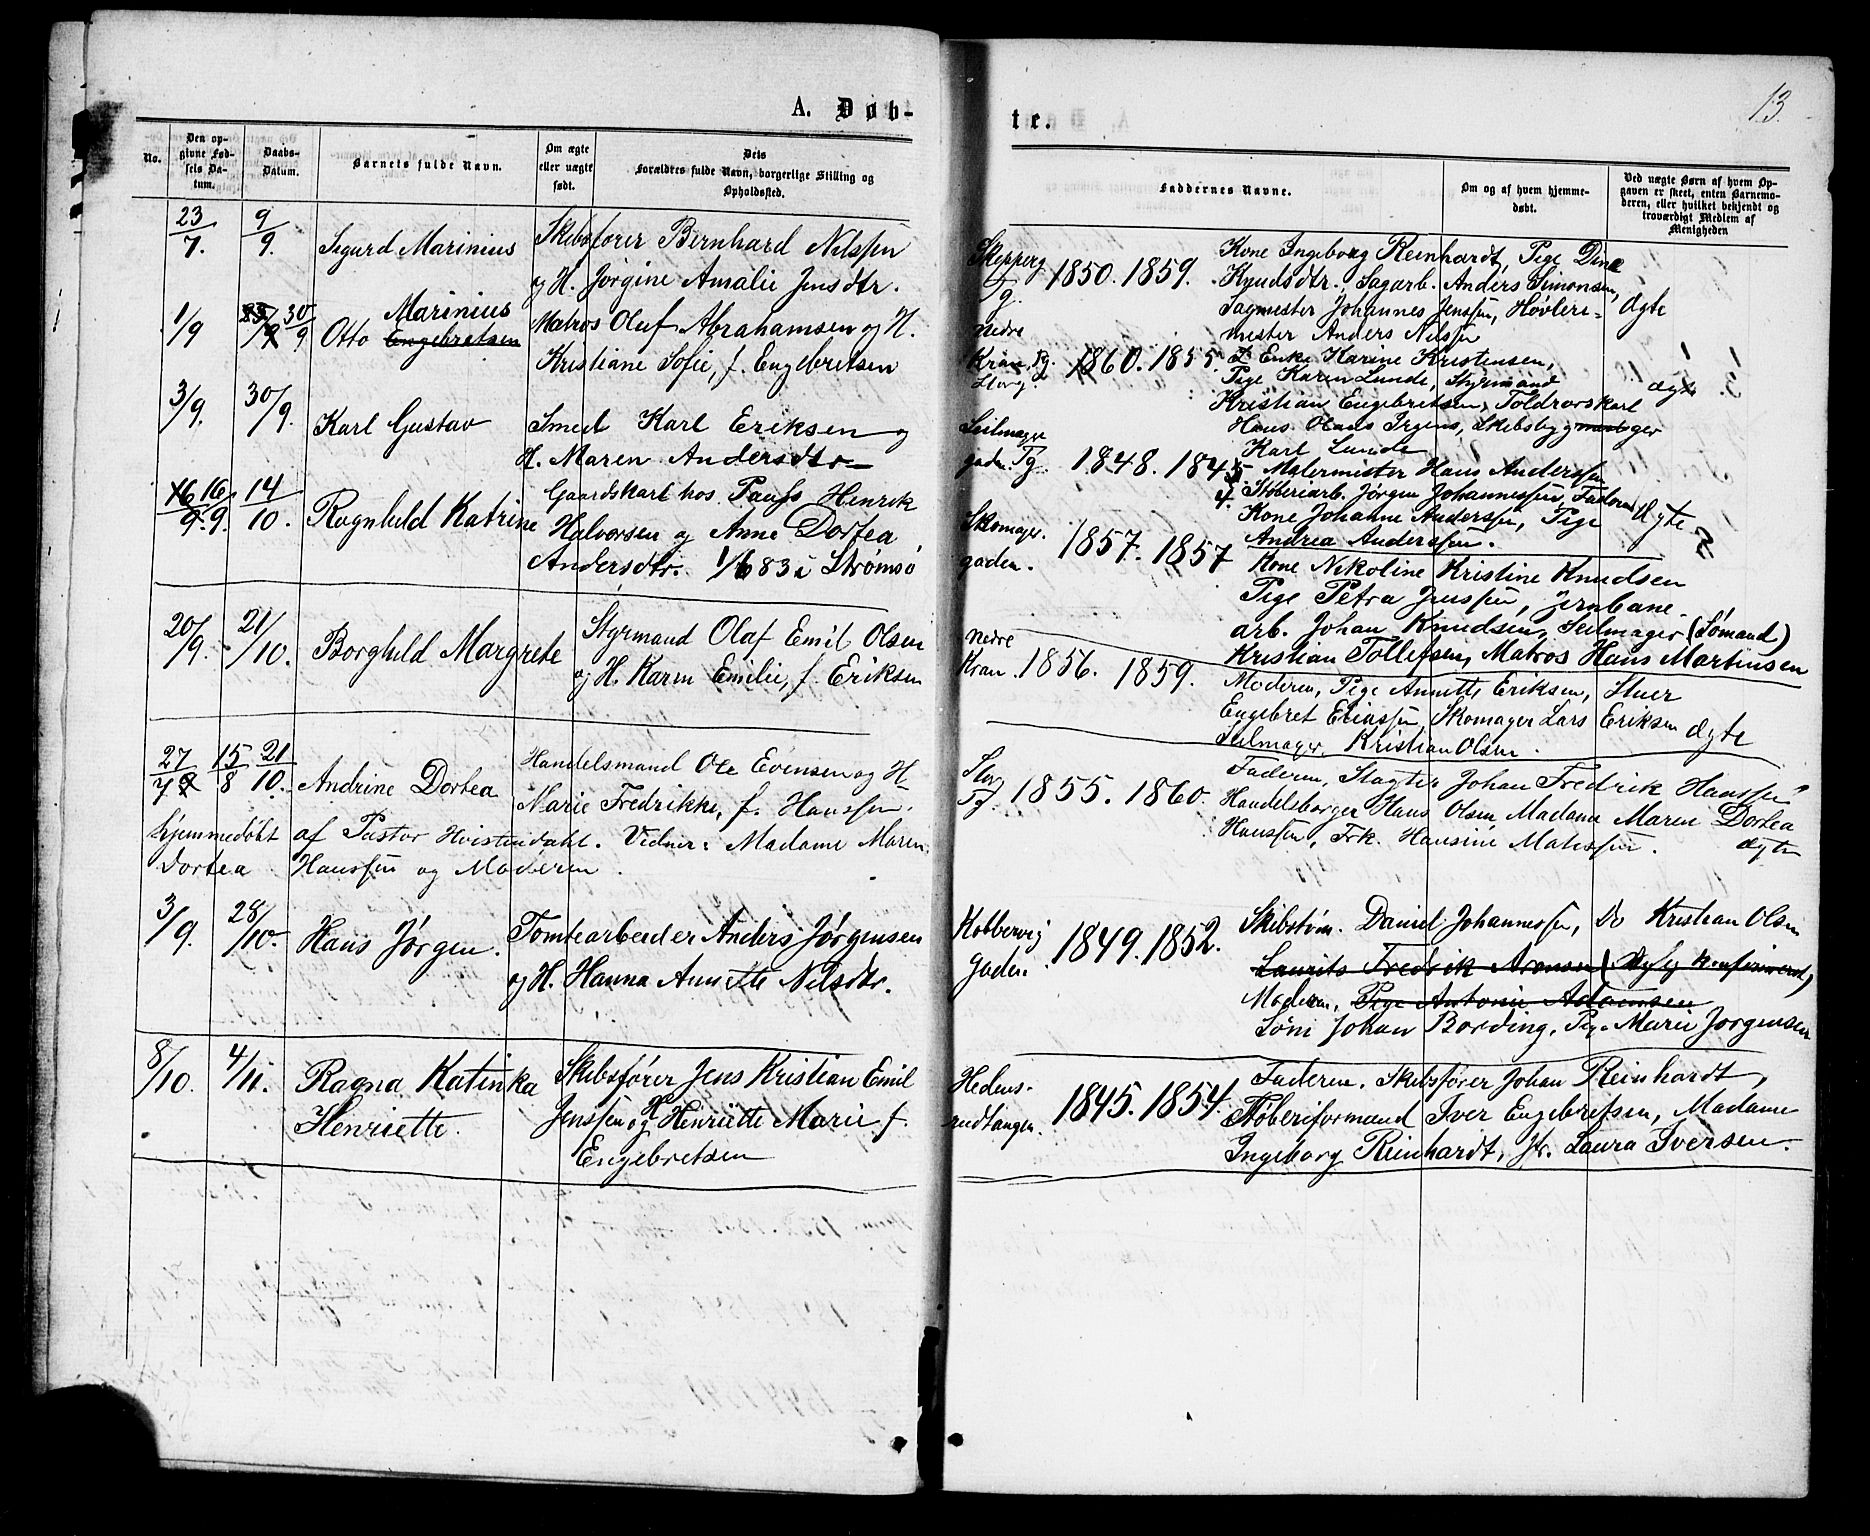 A. Døb-
No.
Den op-
givne Fød-
sels Da-
tum.
Daabs-
Datum.
Barnets fulde Navn.
Om ægte
eller uægte
født.
Dets
Forældres fulde Navn, borgerlige Stilling og
Opholdssted.
23/7. 9/9. Sigurd Marinius Skibsfører Bernhard Nilssen
og H. Jørgine Amalie Jensdtr.
Marinius
1/9 30/9 Otto Engebretsen Matros Olaf Abrahamsen og H.
Kristiane Sofie, f. Engebretsen
3/9. 30/9. Karl Gustav Smed Karl Eriksen og
H. Maren Andersdtr.
16/9. 14/10. Ragnhild Katrine Gaardskarl hos Pauss Henrik
Halvorsen og Anne Dortea
Andersdtr. 1/6 83 i Strømsø
20/9. 21/10. Borghild Margrete Styrmand Olaf Emil Olsen
og H. Karen Emilie, f. Eriksen
27/7 15/8 21/10. Andrine Dortea Handelsmand Ole Evensen og H.
Marie Fredrikke, f. Hanssen.
hjemmedøbt af Pastor Hvistendahl. Vidner: Madame Maren
Dortea Hanssen og Moderen.
3/9. 28/10. Hans Jørgen. Tomtearbeider Anders Jørgensen
og H. Hanna Annette Nilsdtr.
8/10. 4/11. Ragna Katinka Skibsfører Jens Kristian Emil
Henriette. Jenssen og H. Henriette Marie f.
Engebretsen
13.
te.
Faddernes Navne.
Om og af hvem hjemme-
døbt.
Ved uægte Børn af hvem Op-
gaven er skeet, enten Barnemo-
deren, eller hvilket bekjendt og
troværdigt Medlem af
Menigheden
Skepperg
Tg. 1850. 1859. Kone Ingeborg Reinhardt, Pige Dina
Knudsdtr., Sagarb. Anders Simonsen,
Sagmester Johannes Jenssen, Høvleri- ægte
mester Anders Nilssen
nedre
1860. 1855. Enke Karine Kristensen,
Storg. Pige Karen Lunde, Styrmand ægte
Kristian Engebretsen, Toldrorskarl
Hans Olaus Irgens, Skibsbygger
Karl Lunde
Seilmager
gaden. Tg. 1848. 1845 Malermester Hans Anderssen
Støberiarb. Jørgen Johannessen, Faderen ægte
Kone Johanne Anderssen, Pige
Andrea Anderssen.
Skomager.
gaden. 1857. 1857 Kone Nikoline Kristine Knudsen
Pige Petra Jenssen, Jernbane-
arb. Johan Knudsen, Seilmager (Sømand)
Kristian Tollefsen, Matros Hans Martinsen
nedre
Kran. 1856. 1859. Moderen, Pige Annette Eriksen, Stuer
Engebret Eriassen, Skomager Lars Eriksen ægte
Seilmager Kristian Olsen.
Stor
Tg. 1855. 1860. Faderen, Slagter Johan Fredrik Hanssen
Handelsborger Hans Olsen Madame Maren Dortea
Hanssen, Frk. Hansine Mathssen. ægte
Kobbervig
gaden. 1849. 1852. Skibstøm. Daniel Johannessen, Do Kristian Olsen
Laurits Fredrik Aronsen
Moderen, Pige Antonie Adamsen
Johan Bording, Pige Marie Jørgensen
Hedens-
rudtangen. 1845. 1854. Faderen. Skibsfører Johan Reinhardt,
Støberiformand Iver Engebretsen, Madame
Ingeborg Reinhardt, Laura Iversen.